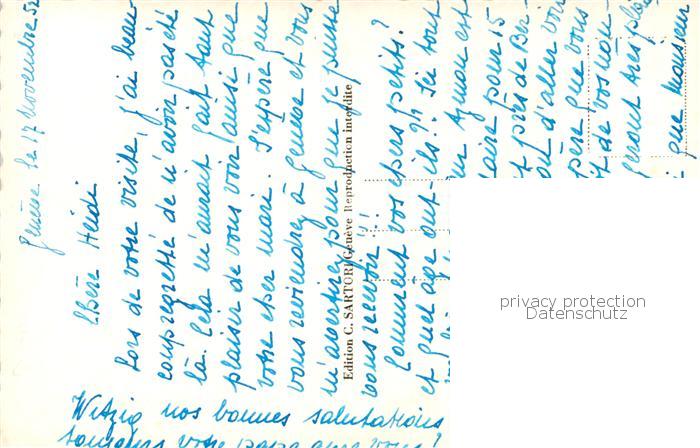 Genève le 17 novembre 52
Chère Heidi
Lors de votre visite, j'ai beau-
coup regretté de n'avoir pas été
là. Cela m'aurait fait tant
plaisir de vous voir ainsi que
votre cher mari. J'espère que
vous reviendrez à Genève et vous
m'avertirez pour que je puisse
vous recevoir!!
Comment vos chers petits?
et quel age ont-ils? Ici tout
mon est
taire pour 15
et près de Ber-
d'aller voir
père que vous
t de vos nou-
feront très plai-
i que monsieur
Witzig nos bonnes salutations
toujours votre papa avec vous?
Edition C. SARTORI Genève Reproduction interdite
privacy protection
Datenschutz